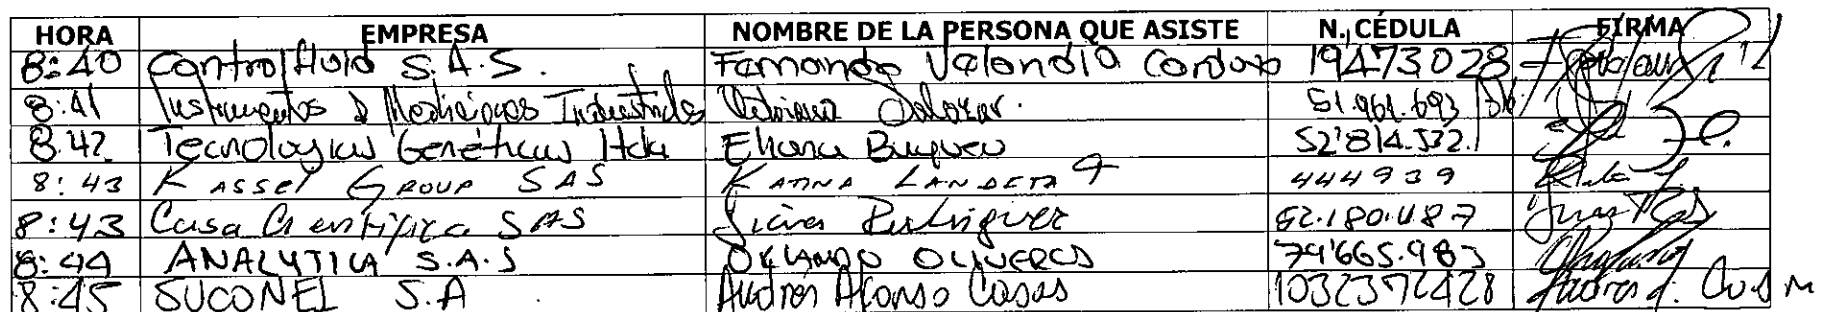 HORA EMPRESA NOMBRE DE LA PERSONA QUE ASISTE N. CÉDULA FIRMA
8:40 Controlfluid S.A.S. Fernando Velandia Cardozo 19473028
8:41 Instrumentos & Mediciones Industriales Salazar. 51.961.693
8:42 Tecnologias Genéticas ltda Eliana 52'814.532.
8:43 KASSEL GROUP SAS KATINA LANDETA 444939
8:43 Casa Cientifica SAS Rodriguez 52.180.487
8:44 ANALYTICA S.A.S ORLANDO OLIVEROS 79'665.983
8:45 SUCONEL S.A Andrés Alonso Casas 1032372428